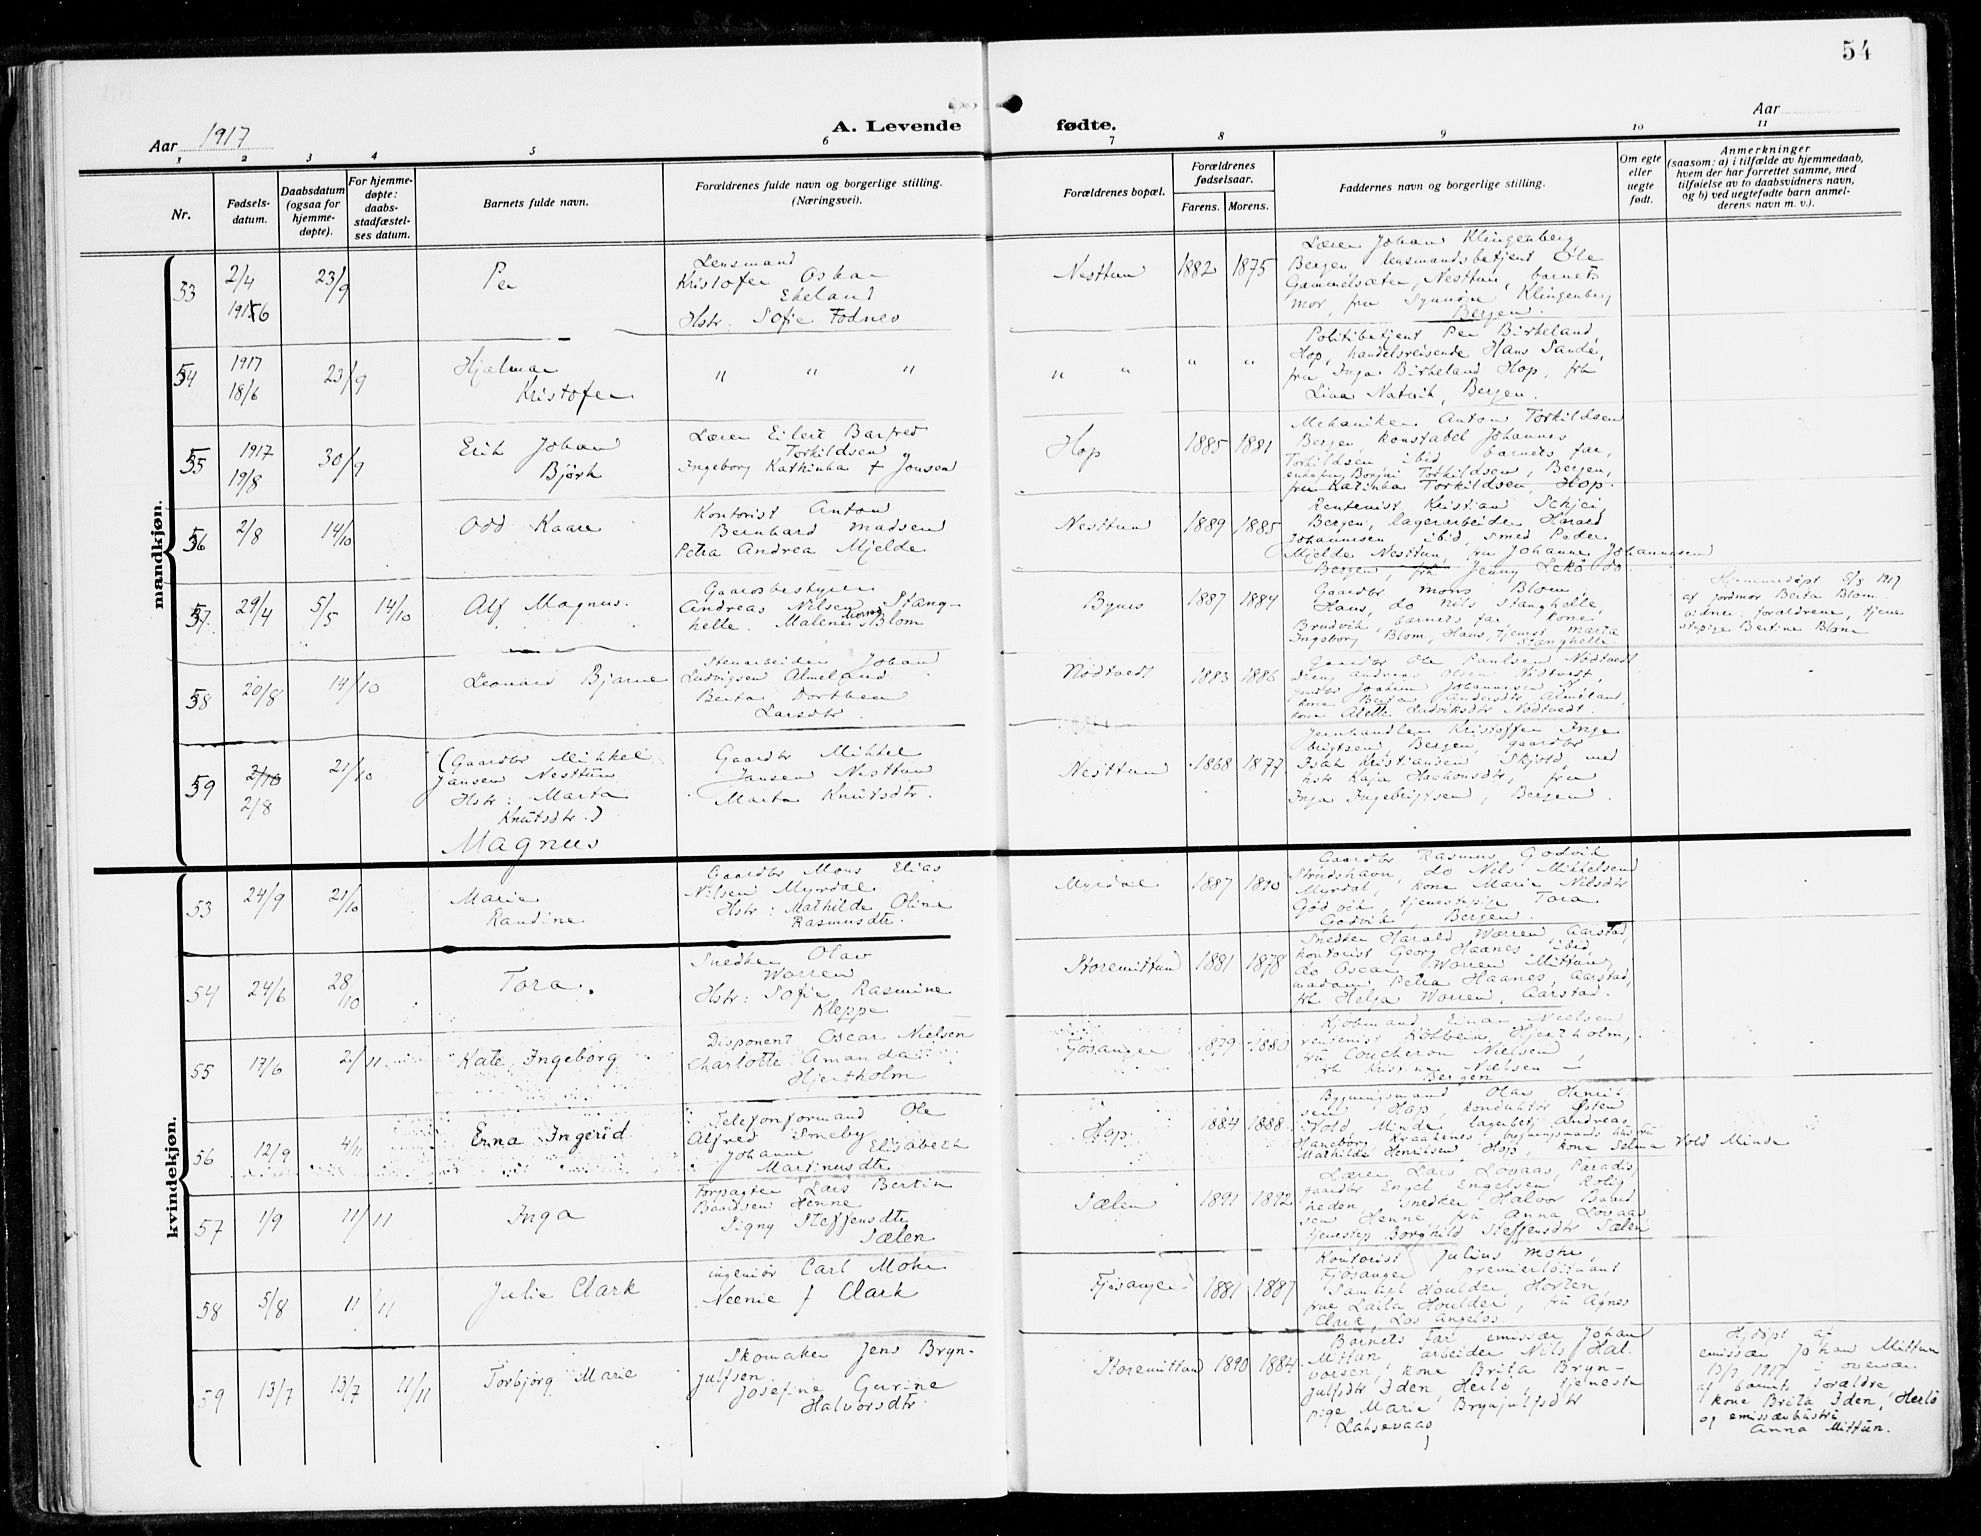 54
Aar 1917
A. Levende fødte.
Aar
1 2 3 4 5 6 7 8 9 10 11
Nr.
Fødsels-
datum.
Daabsdatum
(ogsaa for
hjemme-
døpte).
For hjemme-
døpte:
daabs-
stadfæstel-
ses datum.
Barnets fulde navn.
Forældrenes fulde navn og borgerlige stilling.
(Næringsvei).
Forældrenes bopæl.
Forældrenes
fødselsaar.
Farens. Morens.
Faddernes navn og borgerlige stilling.
Om egte
eller
uegte
født.
Anmerkninger
(saasom: a) i tilfælde av hjemmedaab,
hvem der har forrettet samme, med
tilføielse av to daabsvidners navn,
og b) ved uegtefødte barn anmel-
derens navn m. v.).
mandkjøn.
53
2/4
1916
23/9
Per
Lensmand
Kristofer Oskar
Ekeland
Hstr: Sofie Fodnes
Nesttun
1882 1875
Lærer Johan Klingenberg,
Bergen lensmandsbetjent Ole
Gammelsæter, Nesttun, barnets
mor, fru Synnøve Klingenberg
Bergen.
54
1917
18/6
23/9
Hjalmar
Kristofer
" " "
" "
" "
Politibetjent Per Birkeland,
Hop, handelsreisende Hans Sande,
fru Inga Birkeland Hop, frk
Lina Natvik, Bergen.
55
1917
19/8
30/9
Erik Johan
Bjørk
Lærer Eilert Barfred
Torkildsen
Ingeborg Kathinka f Jonsen
Hop
1885 1881
Mekaniker Anton Torkildsen
Bergen konstabel Johannes
Torkildsen ibid barnets far,
enkefru Borgni Torkildsen, Bergen,
fru Katinka Torkildsen, Hop.
56
2/8
14/10
Odd Kaare
Kontorist Anton
Bernhard Madsen
Petra Andrea Mjelde
Nesttun
1889 1885
Rentenist Kristian Schjei,
Bergen, lagerarbeider Harald
Johannesen ibid, smed Peder
Mjelde Nesttun, fru Johanne Johannesen
Bergen, frk Jenny Lekø do
57
29/4
5/5
14/10
Alf Magnus.
Gaardsbestyrer
Andreas Nilsen Stang-
helle. Malene Monsd Blom
Bynes
1887 1884
Gaardbr Mons Blom,
Haus, do Nils Stanghelle,
Brudvik, barnets far, kone
Ingeborg Blom, Haus, tjenest Marta
Stanghelle
Hjemmedøpt 5/5 1917
af jordmor Berta Blom
vidner: forældrene, tjene
stepige Bertine Blom
58
20/8
14/10
Leonard Bjarne
Stenarbeider Johan
Ludvigsen Almeland
Berta Dorthea
Larsdtr.
Nødtvedt
1883 1886
Gaardbr Ole Paulsen Nødtvedt
Dreng Andreas Olsen Nødtvedt,
gaardbr Joakim Johannesen
kone Berta Andersdtr Almeland,
kone Alette Ludviksdtr Nødtvedt.
59
2/10
2/8
21/10
(Gaardbr Mikkel
Jansen Nesttun
Hstr: Marta
Knutsdtr.)
Magnus
Gaardbr Mikkel
Jansen Nesttun
Marta Knutsdtr.
Nesttun
1868 1877
Jernhandler Kristoffer Inge
brigtsen, Bergen, gaardbr
Isak Kristiansen Skjold, med
hstr Kaja Haakonsdtr, fru
Inga Ingebrigtsen, Bergen.
kvindekjøn.
53
24/9
21/10
Marie
Randine
Gaardbr Mons Elias
Nilsen Myrdal
Hstr: Mathilde Oline
Rasmusdtr.
Myrdal
1887 1890
Gaardbr Rasmus Godvik
Strudshavn, do Nils Mikkelsen
Myrdal, kone Marie Nilsdtr
Godvik, tjenestepige Tora
Godvik Bergen.
54
24/6
28/10
Tora.
Snedker Olav
Worren
Hstr: Sofie Rasmine
Kleppe
Storemittun
1881 1878
Snedker Harald Worren, Aarstad,
kontorist Georg Haanes ibid,
do Oscar Worren Mittun,
madam Petra Haanes, Aarstad,
frk Helga Worren, Aarstad.
55
17/6
2/11
Kate Ingeborg
Disponent Oscar Nielsen
Charlotte Amanda
Hjertholm
Fjøsanger
1879 1880
Kjøbmand Einar Nielsen
rentenist Kolbein Hjertholm,
fru Coucheron Nielsen,
frk Kristine Nielsen –
Bergen
56
12/9
4/11
Erna Ingerid
Telefonformand Ole
Alfred Smeby
Johanne Elisabeth
Martinusdtr
Hop
1884 1888
Bygningsmand Olav Henrik-
sen, Hop, konduktør Østen
Vold Minde, lagerbetj Andreas
Haneborg Kraakenes, bygningsmands hustru
Mathilde Henriksen, Hop, kone Selma Vold Minde
57
1/9
11/11
Inga
Forpagter Lars Bertin
Baardsen Henne
Signy Steffensdtr
Sælen
Sælen
1891 1892
Lærer Lars Løvaas, Paradis,
gaardbr Engel Engelsen Rolig
heden, snedker Halvor Baard
sen Henne fru Anna Løvaas
tjenestep Borghild Steffensdtr Sælen
58
5/8
11/11
Julie Clark
ingeniør Carl Mohr
Neenie f Clark
Fjøsanger
1881 1887
Kontorist Julius Mohr,
Fjøsanger premierløitnant
Samuel Houlder, Horten
frue Laila Houlder, fru Agnes
Clark, Los Angelos
59
13/7
13/7
11/11
Torbjørg Marie
Skomaker Jens Bryn-
julfsen
Josefine Gurine
Halvorsdtr.
Storemittun
1890 1884
Barnets far emissær Johan
Mittun, arbeider Nils Hal-
vorsen, kone Brita Bryn-
julfsdtr Iden, Herlø, tjeneste
pige Marie Brynjulfsdtr
Laksevaag
Hjdøpt af
emissær Johan Mittun
13/7 1917 i overvær
af barnets forældre,
kone Brita Iden, Herlø
og emissærhustru
Anna Mittun.